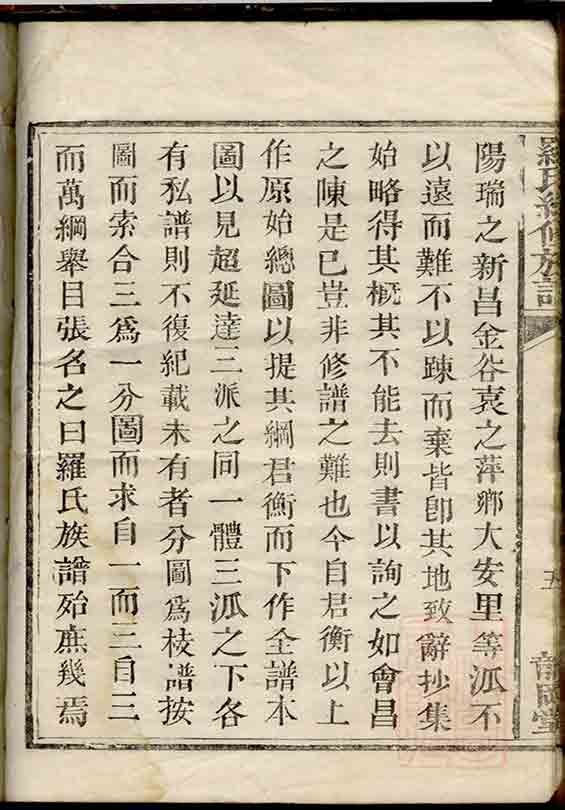 羅氏續修族譜
五
陽瑞之新昌金谷袁之萍鄉大安里等𣲖不
以遠而難不以踈而棄皆卽其地致辭抄集
始略得其槪其不能去則書以詢之如會昌
之陳是已豈非修譜之難也今自君衡以上
作原始總圖以提其綱君衡而下作全譜本
圖以見超延達三派之同一體三𣲖之下各
有私譜則不復紀載未有者分圖爲枝譜按
圖而索合三爲一分圖而求自一而三自三
而萬綱舉目張名之曰羅氏族譜殆庶幾焉